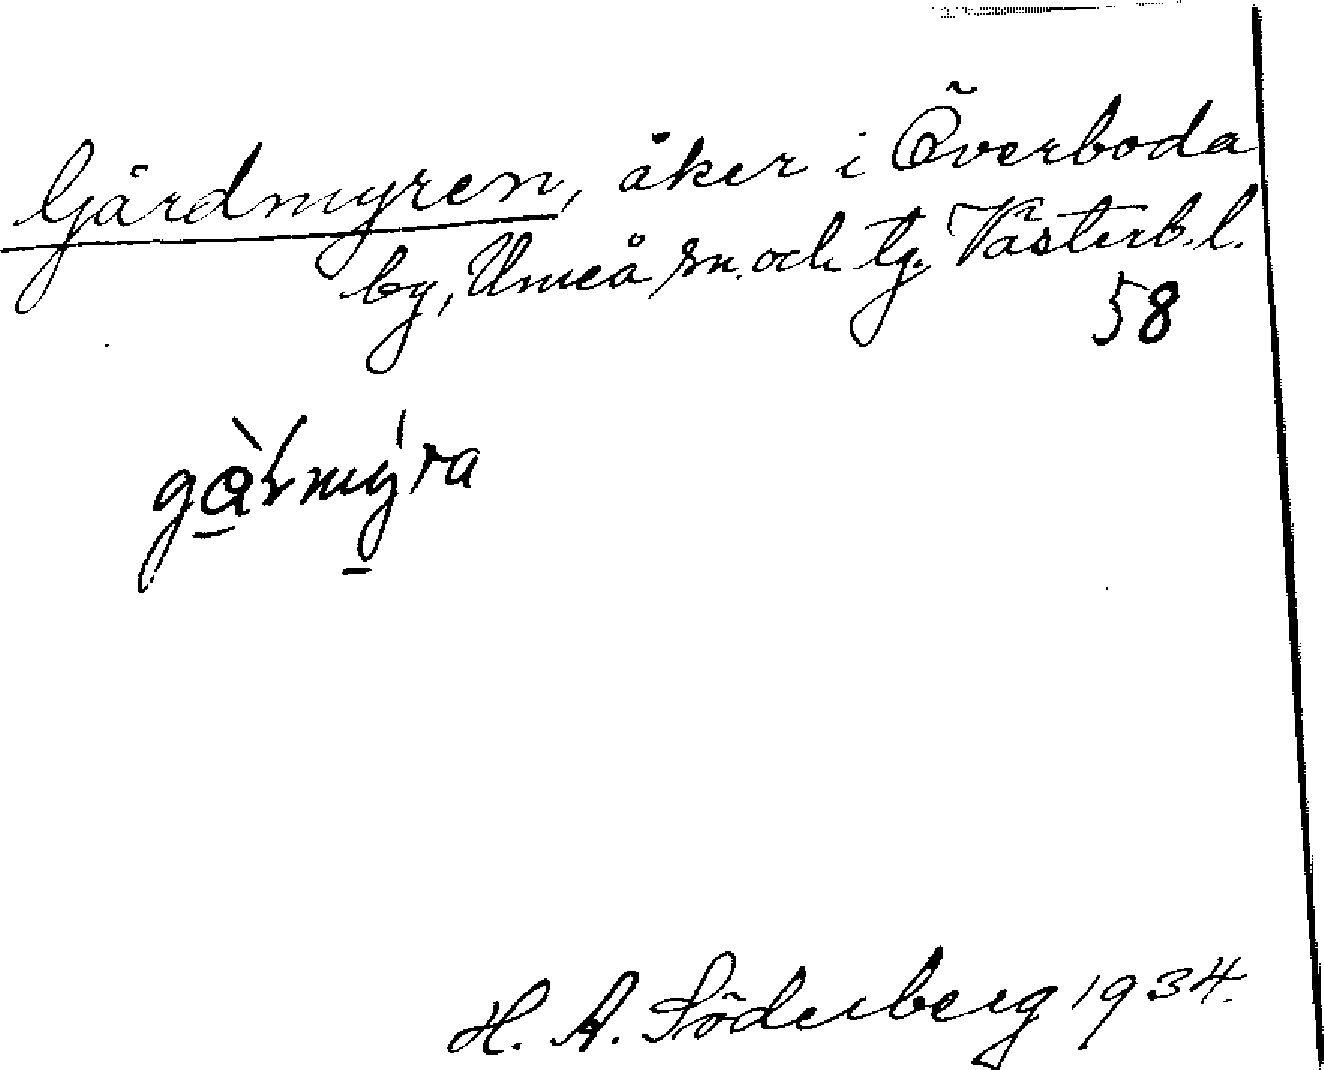 Gårdmyren, åker i Överboda
by, Umeå sn. och tg. Västerb. l.
58
gàrmýra
H. A. Söderberg 1934.